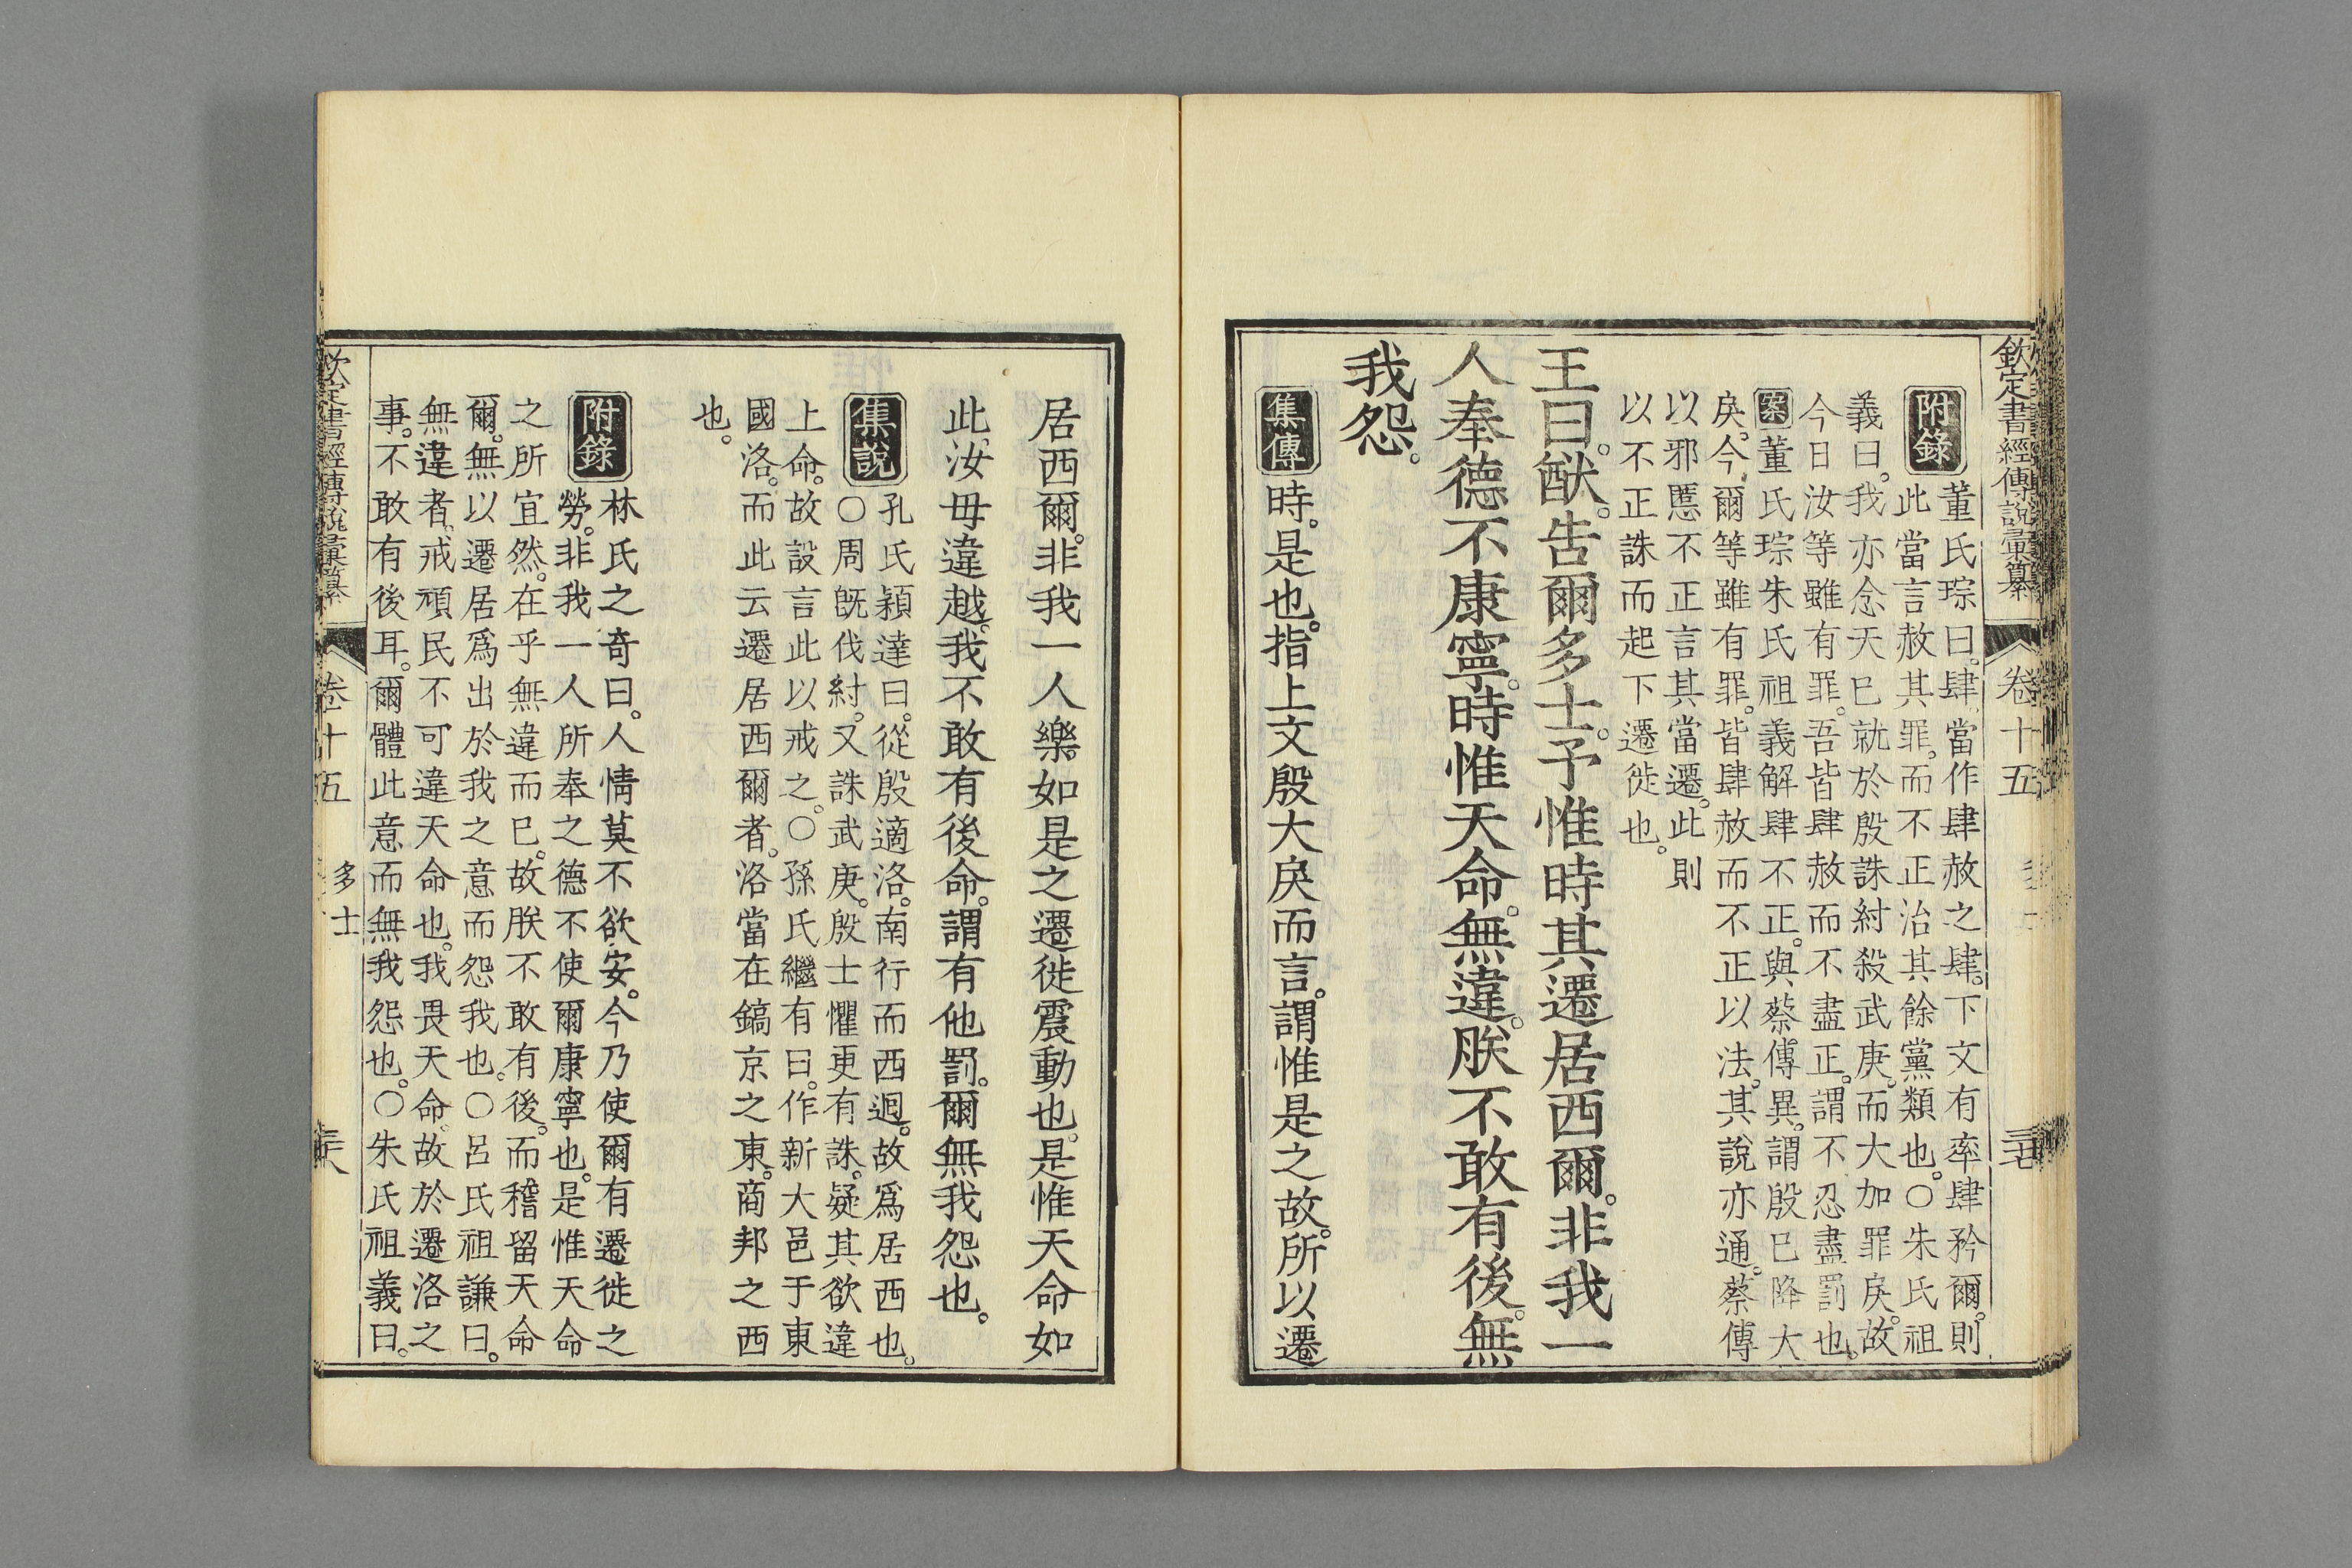 欽定書經傳說彙纂 卷十五
附錄
董氏琮曰。肆當作肆赦之肆。下文有率肆矜爾。則
此當言赦其罪。而不正治其餘黨類也。○朱氏祖
義曰。我亦念天已就於殷誅紂殺武庚。而大加罪戾。故
今日汝等雖有罪。吾皆肆赦而不盡正。謂不忍盡罰也。
案董氏琮朱氏祖義解肆不正。與蔡傳異。謂殷已降大
戾。今爾等雖有罪。皆肆赦而不正以法。其說亦通。蔡傳
以邪慝不正言其當遷。此則
以不正誅而起下遷徙也。
王曰。猷。告爾多士。予惟時其遷居西爾。非我一
人奉德不康寧。時惟天命。無違。朕不敢有後。無
我怨。
集傳 時。是也。指上文殷大戾而言。謂惟是之故。所以遷
居西爾。非我一人樂如是之遷徙震動也。是惟天命如
此。汝毋違越。我不敢有後命。謂有他罰。爾無我怨也。
集說
孔氏穎達曰。從殷適洛。南行而西迴。故爲居西也。
○周旣伐紂。又誅武庚。殷士懼更有誅。疑其欲違
上命。故設言此以戒之。○孫氏繼有曰。作新大邑于東
國洛。而此云遷居西爾者。洛當在鎬京之東。商邦之西
也。
附錄
林氏之奇曰。人情莫不欲安。今乃使爾有遷徙之
勞。非我一人所奉之德不使爾康寧也。是惟天命
之所宜然。在乎無違而已。故朕不敢有後。而稽留天命
爾。無以遷居爲出於我之意而怨我也。○呂氏祖謙曰。
無違者。戒頑民不可違天命也。我畏天命。故於遷洛之
事。不敢有後耳。爾體此意而無我怨也。○朱氏祖義曰。
欽定書經傳說彙纂 卷十五 多士